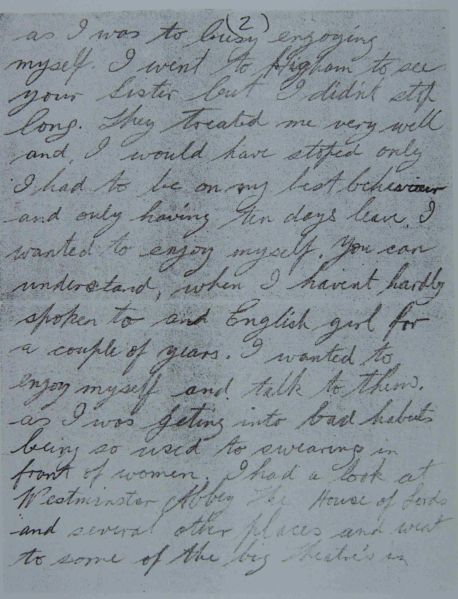 (2)
as I was to busy engoying
myself. I went to Higham to see
your Sister but I didnt stop
long. They treated me very well
and, I would have stoped only
I had to be on my best behaviour
and only having ten days leave I
wanted to enjoy myself. You can
understand, when I havent hardly
spoken to and English girl for
a couple of years. I wanted to
enjoy myself and talk to them.
as I was geting into bad habits
being so used to swearing in
front of women. I had a look at
Westminster Abbey the House of Lords
and several other places and went
to some of the big theatre's in